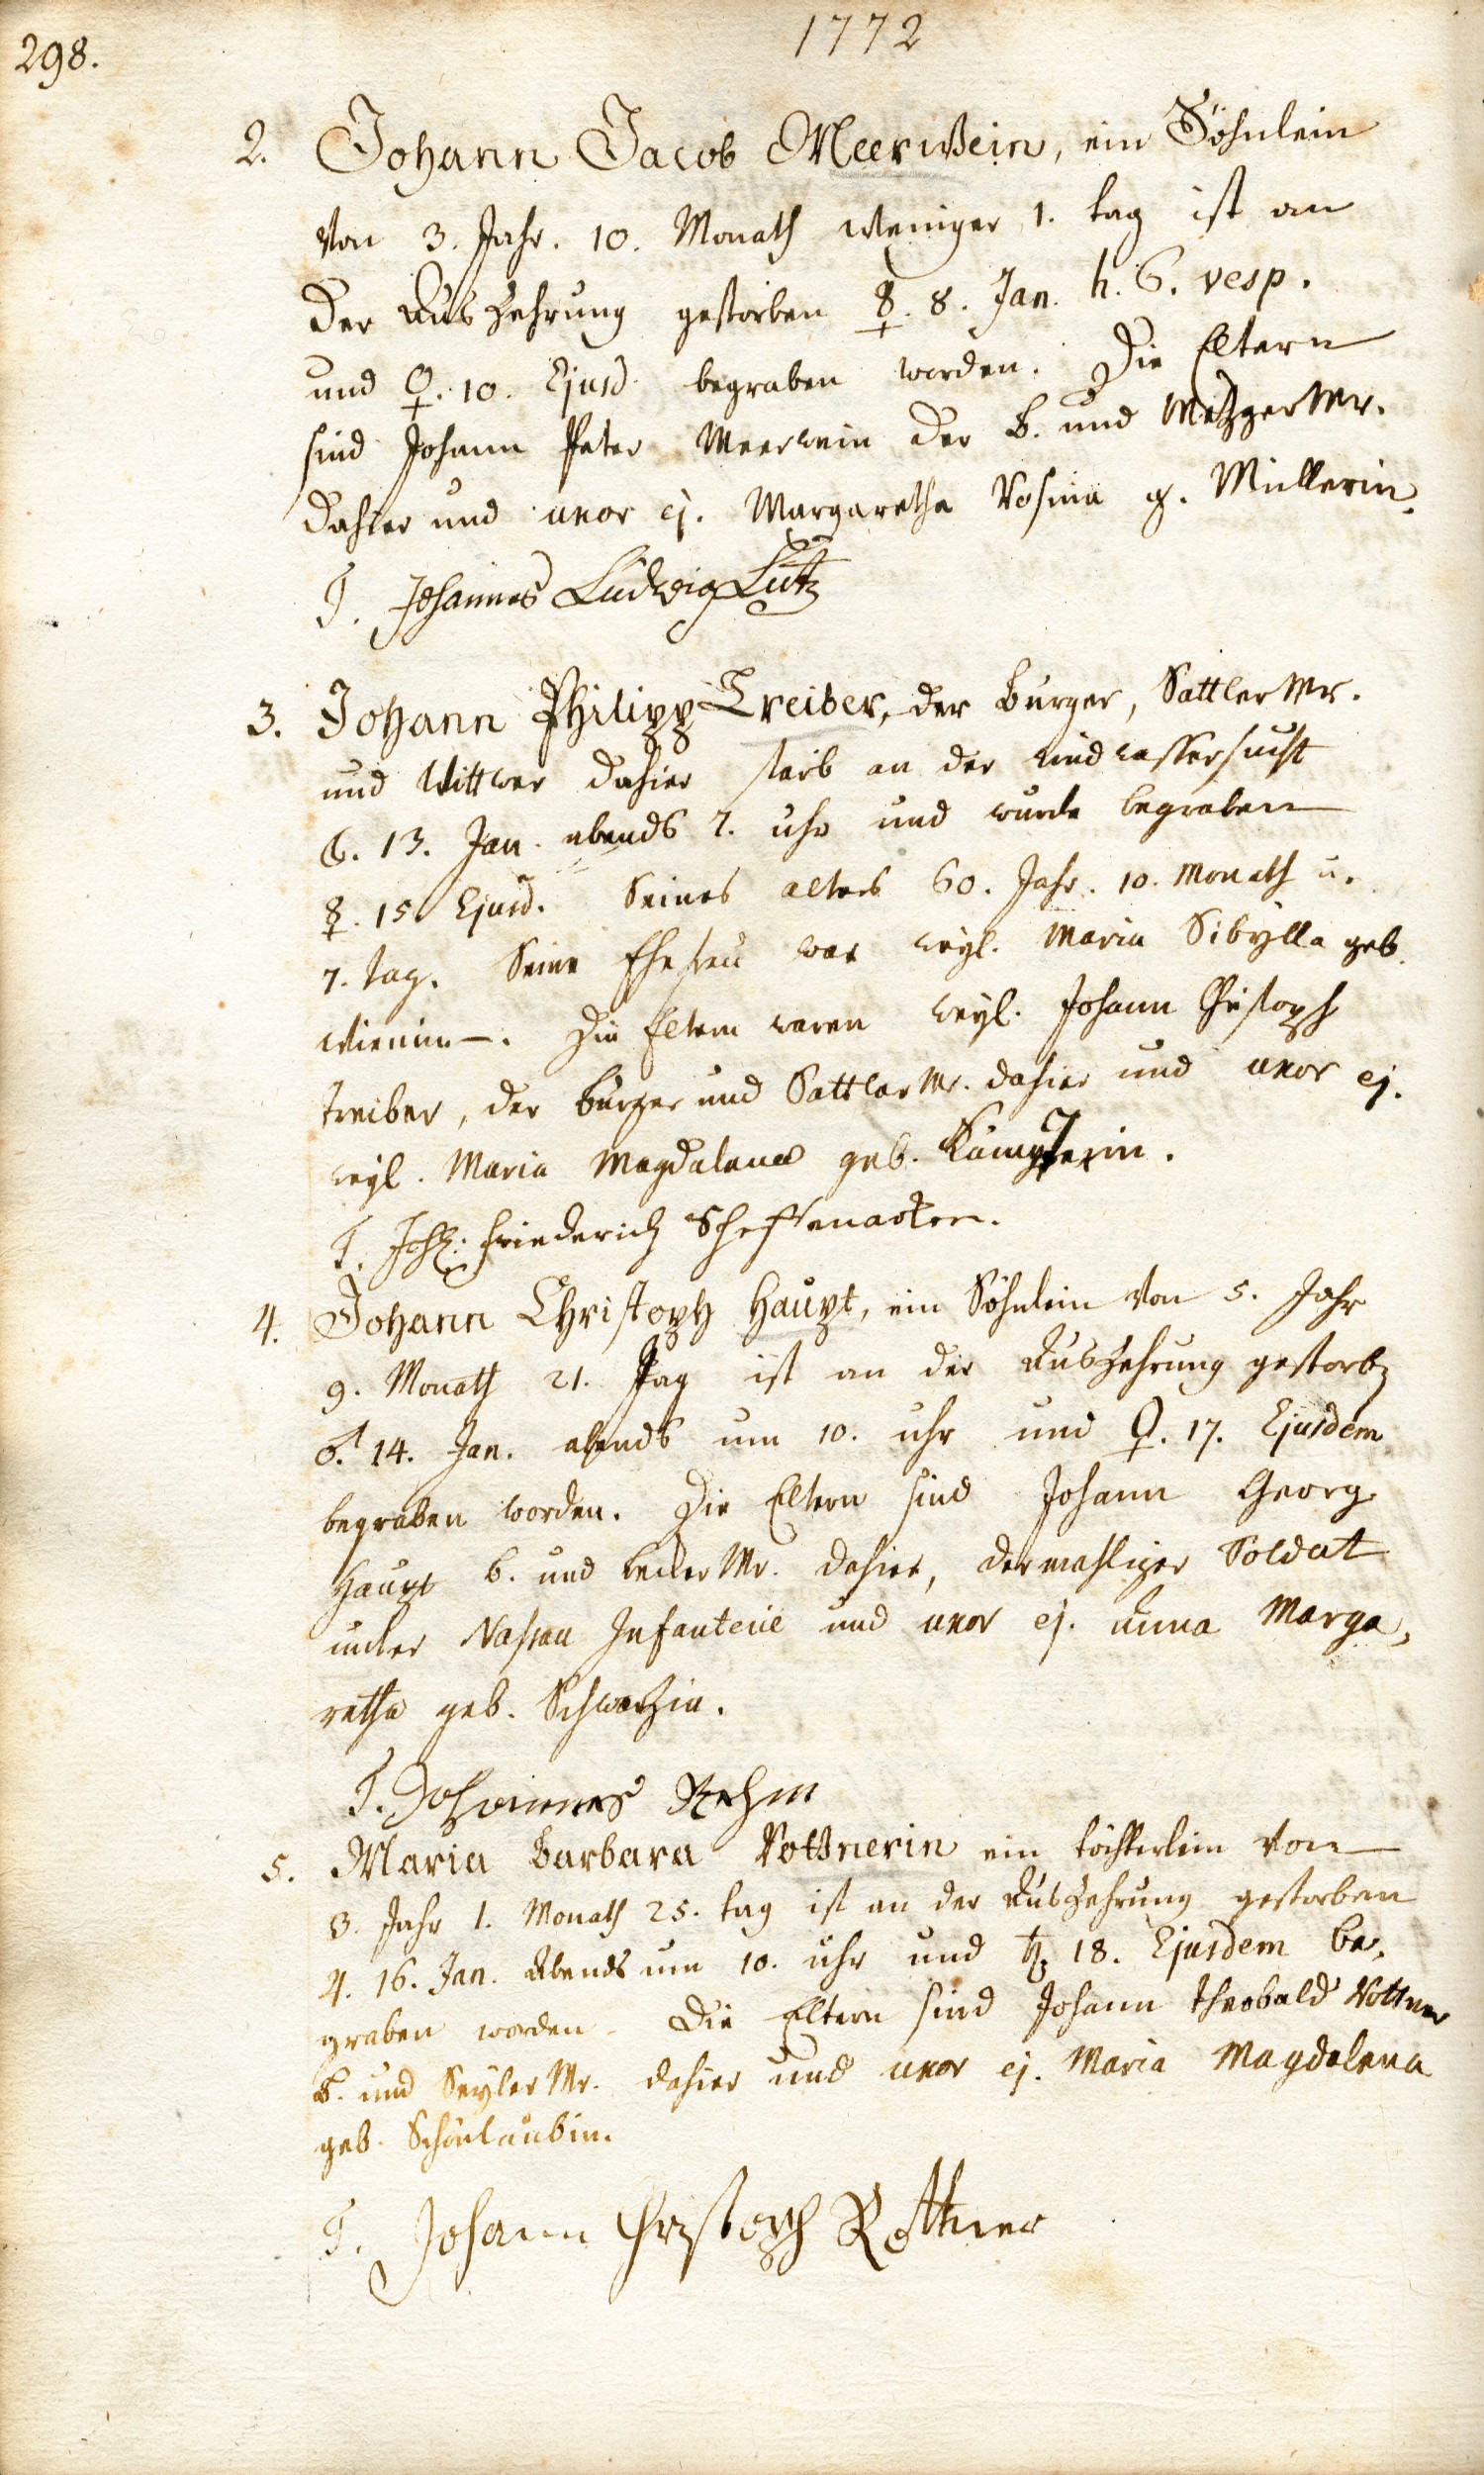 298.
1772
2. Johann Jacob Meerwein, ein Söhnlein
von 3. Jahr. 10. Monath weniger 1. tag ist an
der Auszehrung gestorben ☿. 8. Jan. h. 6. vesp.
und ♀. 10. Ejusd. begraben worden. Die Eltern
sind Johann Peter Meerwein der B. und MezgerMr.
dahier und uxor ej. Margaretha Rosina g. Müllerin.
T. Johannes Ludwig Lutz
3. Johann Philipp Treiber, der burger, SattlerMr.
und Wittwer dahier starb an der windwassersucht
13. Jan. abends 7. uhr und wurde begraben
☿. 15. Ejusd. Seines alters 60. Jahr. 10. Monath u.
7. tag. Seine Ehefrau war weyl. Maria Sibylla geb.
Die Eltern waren weyl. Johann Christoph
treiber, der burger und SattlerMr. dahier und uxor ej.
weyl. Maria Magdalena geb.
T. Joh: Friederich Scheffenacker.
4. Johann Christoph Haupt, ein Söhnlein von 5. Jahr
9. Monath 21. tag ist an der Auszehrung gestorben
♂. 14. Jan. abends um 10. uhr und ♀. 17. Ejusdem
begraben worden. Die Eltern sind Johann Georg
Haupt b. und beckerMr. dahier, dermahliger Soldat
unter Nassau Infanterie und uxor ej. Anna Marga,
retha geb. Schwarzin.
T. Johannes Rehm
5. Maria barbara Rottnerin ein töchterlein von
3. Jahr 1. Monath 25. tag ist an der Auszehrung gestorben
♃. 16. Jan. Abends um 10. uhr und ♄. 18. Ejusdem be,
graben worden. Die Eltern sind Johann theobald Rottner
B. und SeylerMr. dahier und uxor ej. Maria Magdalena
geb. Schönlaubin.
T. Johann Christoph Rottner